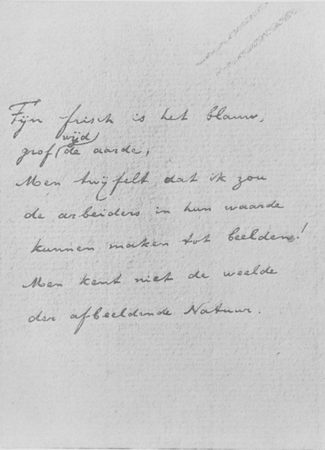 Fijn frisch is het blauw,
wijd
grof (de aarde,
Men twijfelt dat ik zou
de arbeiders in hun waarde
kunnen maken tot beelden!
Men kent niet de weelde
der afbeeldende Natuur.